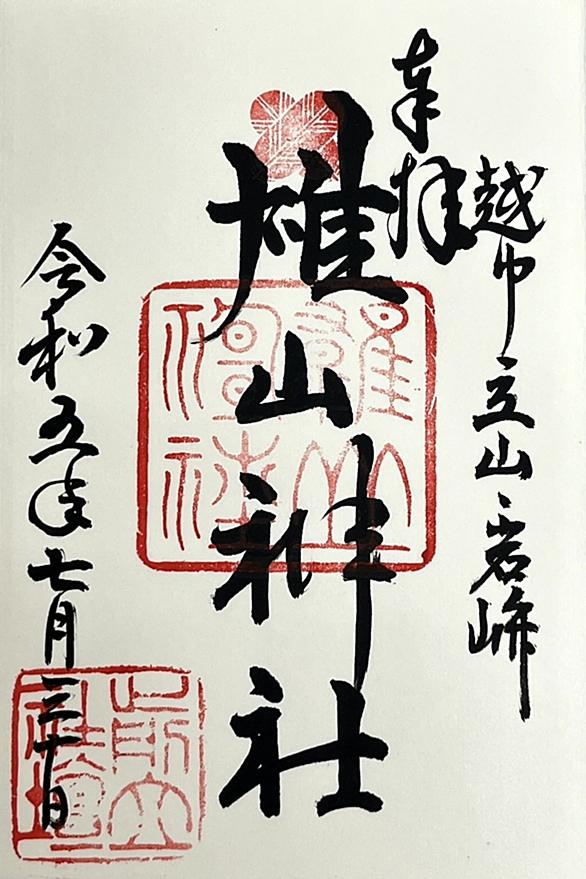 奉拝
越中立山岩峅
雄山神社
令和五年七月三十日
雄山
神社